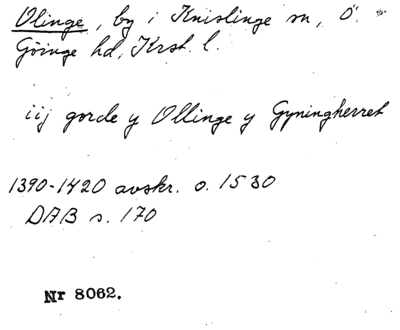 Olinge, by i Knislinge sn, Ö.
Göinge hd, Krst. l.
iij gorde y Ollinge y Gyningherret
1390-1420 avskr. o. 1530
DAB s. 170
Nr 8062.